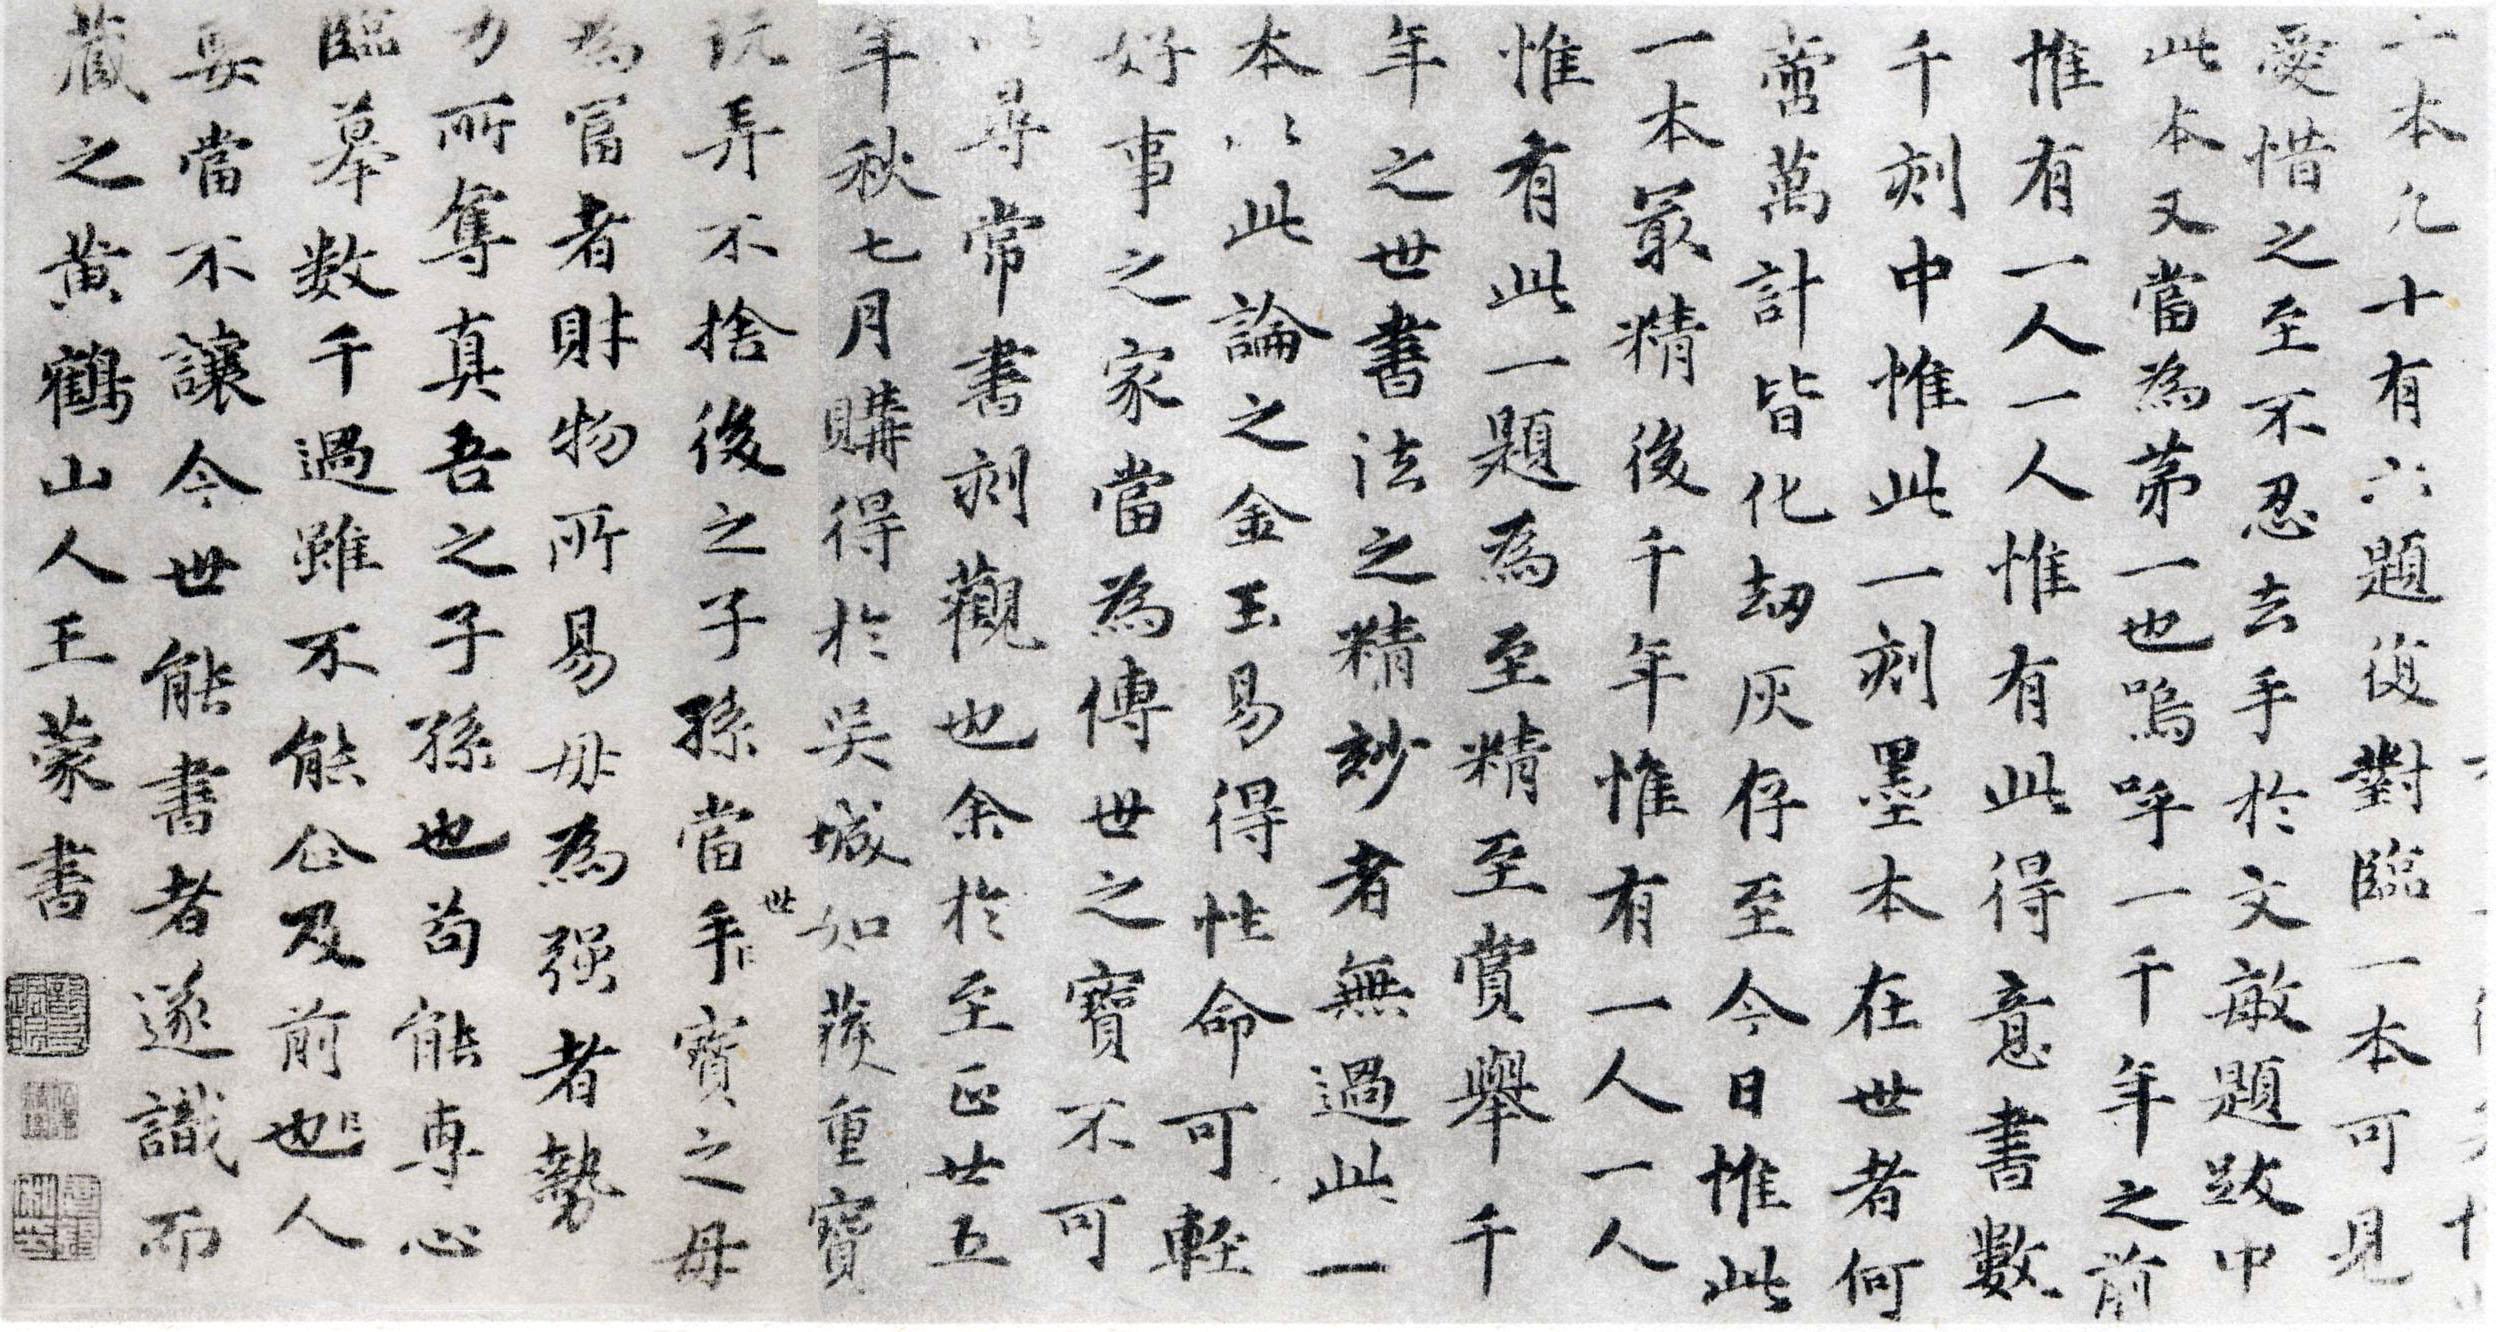 一本凡十有六題復對臨一本可見
愛惜之至不忍去手於文敏題跋中
此本又當為苐一也嗚呼一千年之前
惟有一人一人惟有此得意書數
千刻中惟此一刻墨本在世者何
啻萬計皆化劫灰存至今日惟此
一本最精後千年惟有一人一人
惟有此一題為至精至賞舉千
年之世書法之精妙者無過此一
本以此論之金玉易得性命可輕
好事之家當為傳世之寶不可
以尋常書刻觀也余於至正廿五
年秋七月購得於吳城如獲重寶
玩弄不捨後之子孫當世寶之毋
為富者財物所易毋為強者勢
力所奪真吾之子孫也苟能專心
臨摹数千過雖不能企及前人
要當不讓今世能書者遂識而
藏之黃鶴山人王蒙書